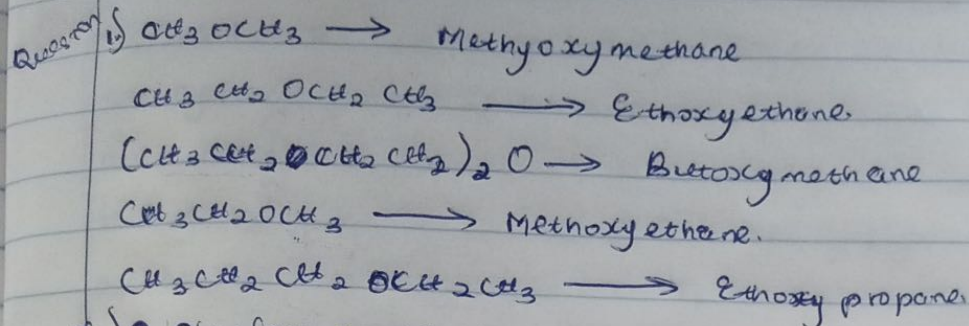 Question 1.) CH3 OCH3 → Methyoxymethane
CH3 CH2 OCH2 CH3 → Ethoxyethane.
(CH3 CH2 CH2 CH2)2 O → Butoxymethane
CH3CH2OCH3 → Methoxyethane.
CH3CH2 CH2 OCH2CH3 → Ethoxy propane.